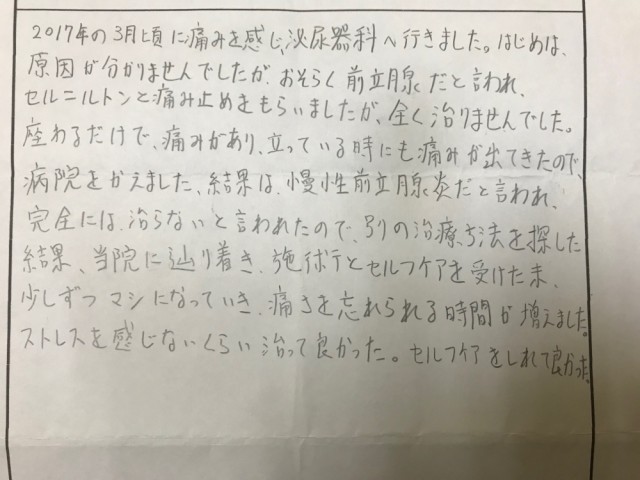 2017年の3月頃に痛みを感じ、泌尿器科へ行きました。はじめは、
原因が分かりませんでしたが、おそらく前立月泉だと言われ、
セルニルトンと痛み止めをもらいましたが、全く治りませんでした。
座わるだけで、痛みがあり、立っている時にも痛みが出てきたので、
病院をかえました、結果は、慢性前立月泉炎だと言われ、
完全には、治らないと言われたので、別の治療方法を探した
結果、当院に辿り着き、施術とセルフケアを受けた
少しずつマシになっていき、痛さを忘れられる時間が増えました。
ストレスを感じないくらい治って良かった。セルフケアをしれて良かった。